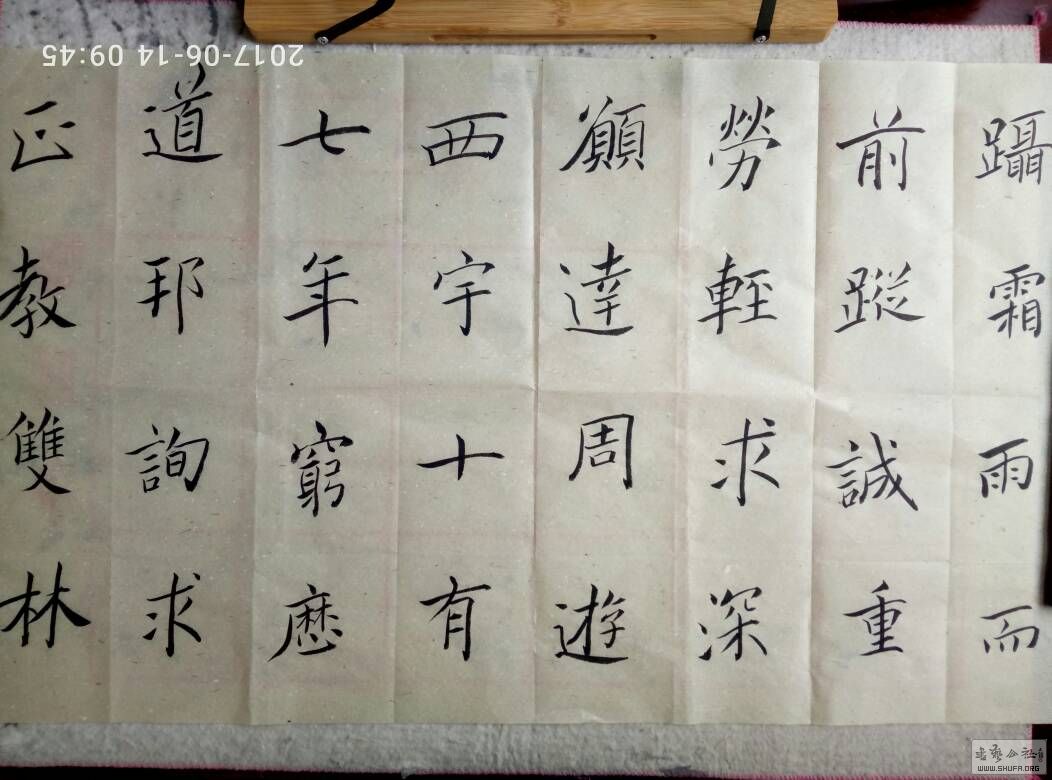 躡霜雨而
前蹤誠重
勞輕求深
願達周遊
西宇十有
七年窮歷
道邦詢求
正教雙林
2017-06-14 09:45
書藝公社
WWW.SHUFA.ORG